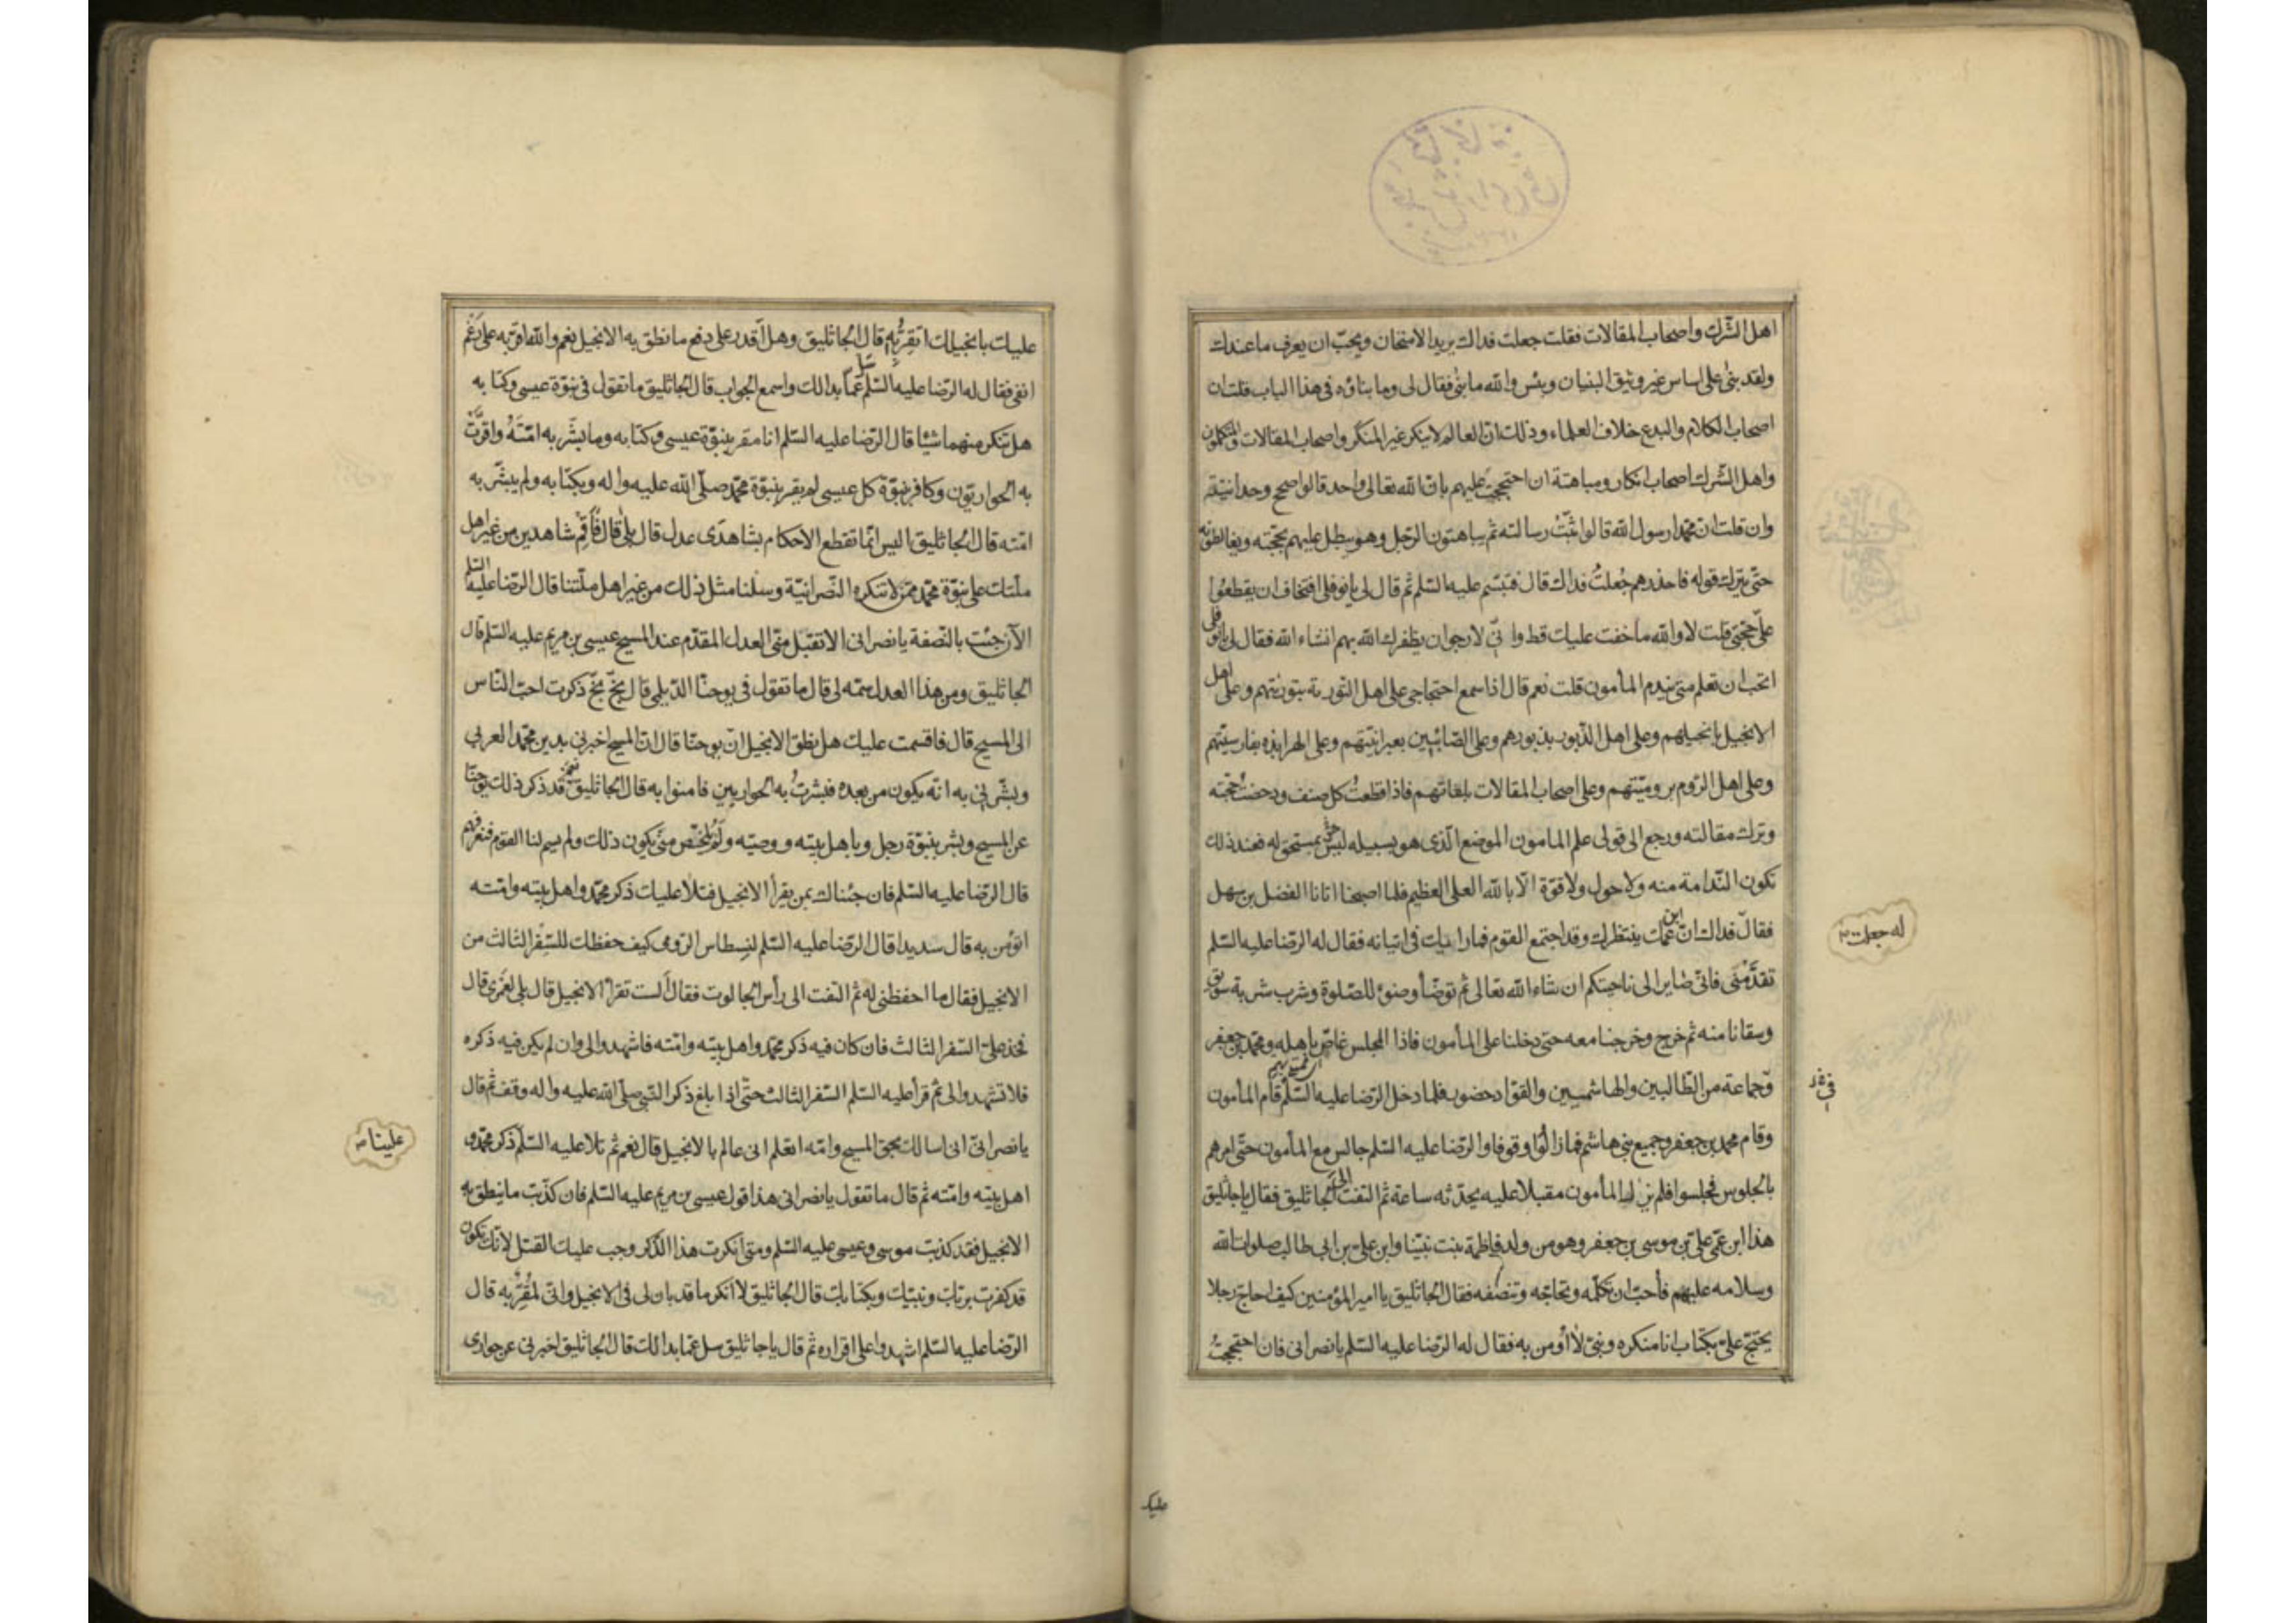 اهل الشّرك واصحاب المقالات فقلت جعلت فداك يريد الامتحان ويحبّ ان يعرف ما عندك
ولقد بنى على اساس غير وثيق البنيان وبئس والله ما بنى فقال لى وما بناؤه فى هذا الباب قلت ان
اصحاب الكلام والبدع خلاف العلماء وذلك انّ العالم لا ينكر غير المنكر واصحاب المقالات والمتكلمون
واهل الشّرك اصحاب انكار ومباهتة ان احتججت عليهم بانّ الله تعالى واحد قالوا صحح وحدانيته
وان قلت انّ محمدا رسول الله قالوا ثبّت رسالته ثم يباهتون الرّجل وهو يبطل عليهم بحجّته ويغالطونه
حتّى يترك قوله فاحذرهم جُعلتُ فداك قال فتبسّم عليه السّلم ثم قال لى يا نوفلى افتخاف ان يقطعُوا
علىّ حجّتى قلت لا والله ما خفت عليك قط وانّى لارجو ان يظفرك الله بهم انشاء الله فقال لى يا نوفلى
اتحب ان تعلم متى يندم المأمون قلت نعم قال اذا سمع احتجاجى على اهل التّورية بتوريتهم وعلى اهل
الانجيل بانجيلهم وعلى اهل الزّبور بزبورهم وعلى الصّائبين بعبرانيّتهم وعلى الهرابذة بفارسيّتهم
وعلى اهل الرّوم بروميّتهم وعلى اصحاب المقالات بلغاتهم فاذا قطعتُ كل صنف ودحضت حجّته
وترك مقالته ورجع الى قولى علم المامون الموضع الّذى هو بسبيله ليس بمستحق له فعند ذلك
تكون النّدامة منه ولا حول ولا قوّة الّا بالله العلى العظيم فلما اصبحنا اتانا الفضل بن سهل
فقال فداك انّ ابن عمّك ينتظرك وقد اجتمع القوم فما رايك فى اتيانه فقال له الرّضا عليه السّلم
له جعلت
تقدّمنى فانّى صاير الى ناحيتكم ان شاء الله تعالى ثم توضّأ وضوء للصّلوة وشرب شربة سويق
وسقانا منه ثم خرج وخرجنا معه حتى دخلنا على المأمون فاذا المجلس غاصّ باهله ومحمد بن جعفر
وجماعة من الطّالبيين والهاشميين والقوّاد حضور فلما دخل الرّضا عليه السّلم قام المأمون
وقام محمد بن جعفر وجميع بنى هاشم فما زالُوا وقوفا والرّضا عليه السّلم جالس مع المأمون حتّى امرهم
بالجلوس فجلسوا فلم يزل المأمون مقبلا عليه يحدّثه ساعة ثم التفت الى الجاثليق فقال يا جاثليق
هذا ابن عمّى علىّ بن موسى بن جعفر وهو من ولد فاطمة بنت نبيّنا وابن علىّ بن ابى طالب صلوات الله
وسلامه عليهم فأحبّ ان تكلّمه وتحاجّه وتنصفه فقال الجاثليق يا امير المؤمنين كيف احاج رجلا
يحتجّ علىّ بكتاب انا منكره ونبىّ لا أومن به فقال له الرّضا عليه السّلم يا نصرانى فان احتججتُ
عليك
عليك بانجيلك اتقرّ به قال الجاثليق وهل اقدر على دفع ما نطق به الانجيل نعم والله اقرّ به على رَغْم
انفى فقال له الرّضا عليه السّلم سل عمّا بدا لك واسمع الجواب قال الجاثليق ما تقول فى نبوّة عيسى وكتابه
هل تنكر منهما شيئا قال الرّضا عليه السّلم انا مقر بنبوّة عيسى وكتابه وما بشّر به امّتَهُ واقرّت
به الحواريّون وكافر بنبوّة كل عيسى لم يقر بنبوّة محمّد صلّى الله عليه واله وبكتابه ولم يبشّر به
امّته قال الجاثليق اليس انّما تقطع الاحكام بشاهدَى عدل قال بلى قال فأقِمْ شاهدين من غير اهل
ملّتك على نبوّة محمّد ممّن لا تنكره النّصرانيّة وسلنا مثل ذلك من غير اهل ملّتنا قال الرّضا عليه السّلم
الآن جئت بالنّصفة يا نصرانى الا تقبل منّى العدل المقدّم عند المسيح عيسى بن مريم عليه السّلم قال
الجاثليق ومن هذا العدل سمّه لى قال ما تقول فى يوحنّا الدّيلمى قال بخّ بخّ ذكرت احبّ النّاس
الى المسيح قال فاقسمت عليك هل نطق الانجيل انّ يوحنّا قال انّ المسيح اخبرنى بدين محمّد العربى
وبشّرنى به انّه يكون من بعده فبشرتُ به الحواريين فامنوا به قال الجاثليق قد ذكر ذلك يوحنّا
عن المسيح وبشر بنبوّة رجل وباهل بيته ووصيّه ولم يلخّص متى يكون ذلك ولم يسم لنا القوم فنعرفهم
قال الرّضا عليه السّلم فان جئناك بمن يقرأ الانجيل فتلا عليك ذكر محمّد واهل بيته وامّته
اتؤمن به قال سديدا قال الرّضا عليه السّلم لنسطاس الرّومى كيف حفظك للسّفر الثالث من
الانجيل فقال ما احفظنى له ثم التفت الى رأس الجالوت فقال ألست تقرأ الانجيل قال بلى لعمرى قال
فخذ علىّ السّفر الثالث فان كان فيه ذكر محمّد واهل بيته وامّته فاشهدوا لى وان لم يكن فيه ذكره
فلا تشهدوا لى ثم قرأ عليه السّلم السّفر الثالث حتّى اذا بلغ ذكر النّبى صلّى الله عليه واله وقف ثم قال
يا نصرانىّ انى اسالك بحق المسيح وامّه اتعلم انى عالم بالانجيل قال نعم ثم تلا عليه السّلم ذكر محمّد و
علينا
اهل بيته وامّته ثم قال ما تقول يا نصرانى هذا قول عيسى بن مريم عليه السّلم فان كذّبت ما ينطق به
الانجيل فقد كذبت موسى وعيسى عليه السّلم ومتى أنكرت هذا الذّكر وجب عليك القتل لأنّك تكون
قد كفرت بربّك ونبيّك وبكتابك قال الجاثليق لا أنكر ما قد بان لى فى الانجيل وانّى لمُقِرّ به قال
الرّضا عليه السّلم اشهدوا على اقراره ثم قال يا جاثليق سل عمّا بدا لك قال الجاثليق اخبرنى عن حوارى